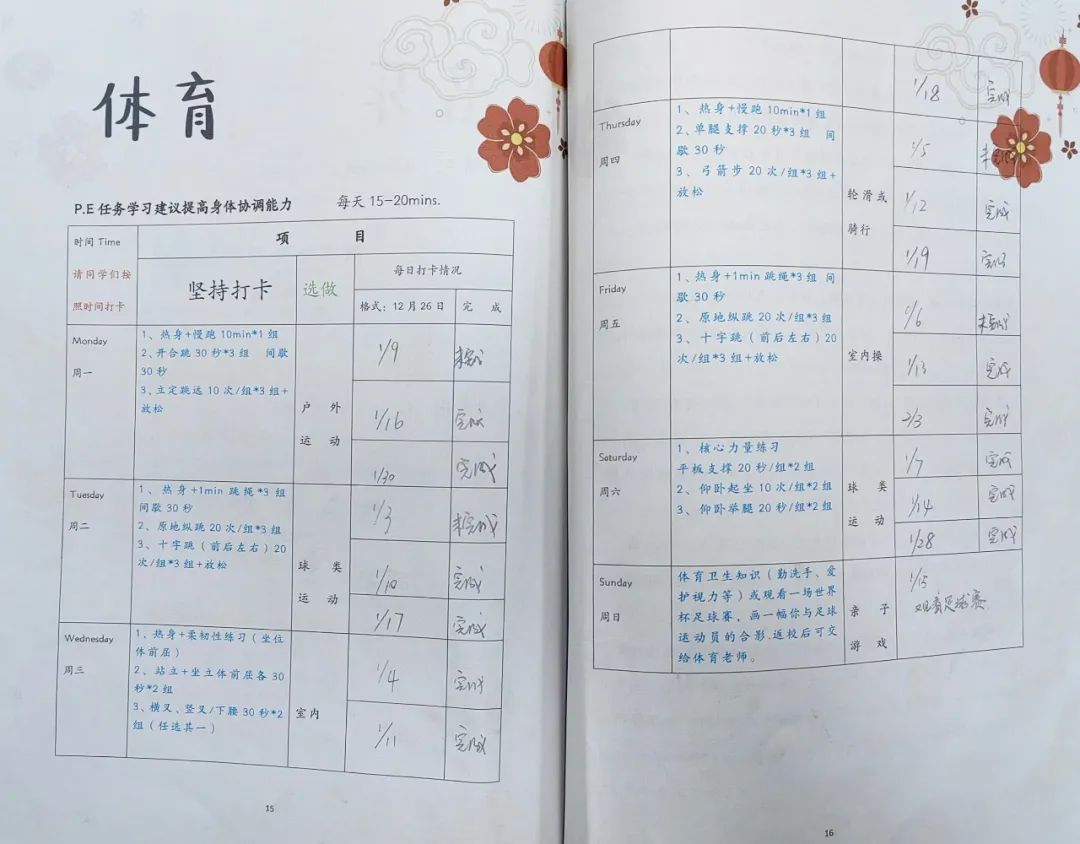 体育
P.E任务学习建议提高身体协调能力 每天15-20mins.
时间 Time
请同学们按
照时间打卡
项 目
坚持打卡
选做
每日打卡情况
格式:12月26日 完 成
Monday
周一
1、热身+慢跑10min*1组
2、开合跳30秒*3组 间歇
30秒
3、立定跳远10次/组*3组+
放松
户 外
运 动
1/9 未完成
1/16 完成
1/30 完成
Tuesday
周二
1、热身+1min 跳绳*3组
间歇30秒
2、原地纵跳20次/组*3组
3、十字跳(前后左右)20
次/组*3组+放松
球 类
运 动
1/3 未完成
1/10 完成
1/17 完成
Wednesday
周三
1、热身+柔韧性练习(坐位
体前屈)
2、站立+坐立体前屈各30
秒*2组
3、横叉、竖叉/下腰30秒*2
组(任选其一)
室内
1/4 完成
1/11 完成
15
1/18 完成
Thursday
周四
1、热身+慢跑10min*1组
2、单腿支撑20秒*3组 间
歇30秒
3、弓箭步20次/组*3组+
放松
轮滑或
骑行
1/5 未完成
1/12 完成
1/19 完成
Friday
周五
1、热身+1min跳绳*3组 间
歇30秒
2、原地纵跳20次/组*3组
3、十字跳(前后左右)20
次/组*3组+放松
室内操
1/6 未完成
1/13 完成
2/3 完成
Saturday
周六
1、核心力量练习
平板支撑20秒/组*2组
2、仰卧起坐10次/组*2组
3、仰卧举腿20秒/组*2组
球 类
运 动
1/7 完成
1/14 完成
1/28 完成
Sunday
周日
体育卫生知识(勤洗手、爱
护视力等)或观看一场世界
杯足球赛,画一幅你与足球
运动员的合影.返校后可交
给体育老师。
亲 子
游 戏
1/15
观看足球赛
16